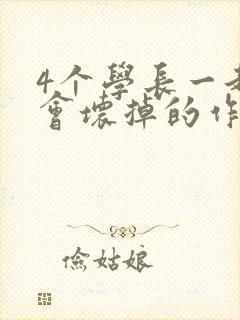 4个學長一起
會壞掉的作
儉姑娘